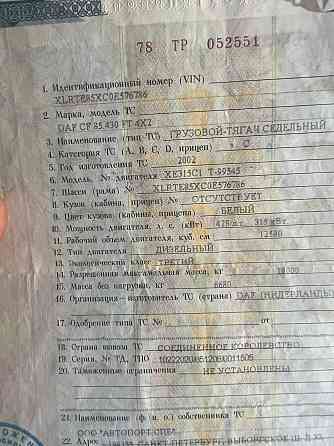 78 ТР 052551
1. Идентификационный номер (VIN)
XLRTE85XC0E576786
2. Марка, модель ТС
DAF CF 85.430 FT 4X2
3. Наименование (тип ТС) ГРУЗОВОЙ-ТЯГАЧ СЕДЕЛЬНЫЙ
4. Категория ТС (A, B, C, D, прицеп) C
5. Год изготовления ТС 2002
6. Модель, № двигателя XE315C1 T-99545
7. Шасси (рама) № XLRTE85XC0E576786
8. Кузов (кабина, прицеп) № ОТСУТСТВУЕТ
9. Цвет кузова (кабины, прицепа) БЕЛЫЙ
10. Мощность двигателя, л. с. (кВт)
11. Рабочий объем двигателя, куб. см 12580
12. Тип двигателя ДИЗЕЛЬНЫЙ
13. Экологический класс ТРЕТИЙ
14. Разрешенная максимальная масса, кг
15. Масса без нагрузки, кг 6680
16. Организация - изготовитель ТС (страна) DAF (НИДЕРЛАНДЫ
17. Одобрение типа ТС № от
18. Страна вывоза ТС СОЕДИНЕННОЕ КОРОЛЕВСТВО
19. Серия, № ТД, ТПО
20. Таможенные ограничения НЕ УСТАНОВЛЕНЫ
21. Наименование (ф. и. о.) собственника ТС
ООО
22. Адрес САНКТ-ПЕТЕРБУРГ, ВЫБОРГСКОЕ